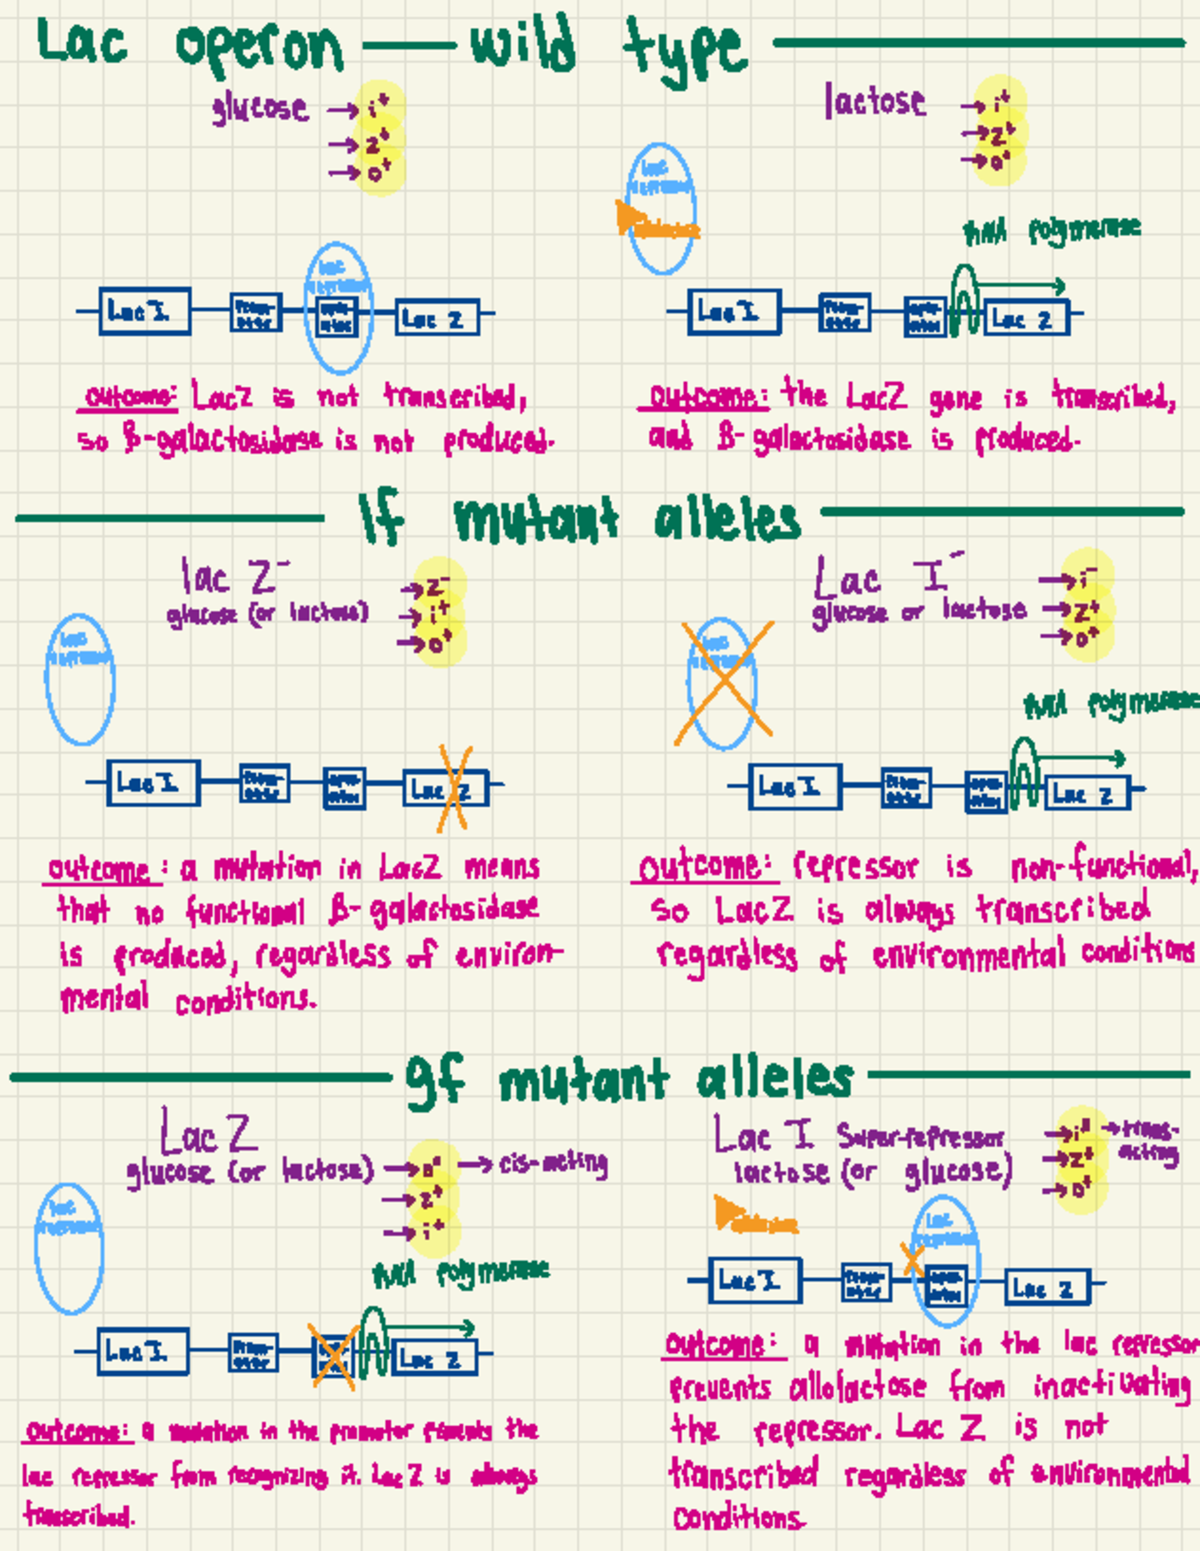 Lac operon — wild type
glucose → i+
→ z+
→ o+
lactose → i+
→ z+
→ o+
Lac
repressor
Lac
repressor
RNA polymerase
Lac I
Promo-
oter
Oper-
ator
Lac Z
Lac I
Promo-
oter
Oper-
ator
Lac Z
outcome: LacZ is not transcribed,
so β-galactosidase is not produced.
outcome: the LacZ gene is transcribed,
and β-galactosidase is produced.
lf mutant alleles
lac Z-
glucose (or lactose)
→ z-
→ i+
→ o+
Lac I-
glucose or lactose
→ i-
→ z+
→ o+
Lac
repressor
Lac
repressor
RNA polymerase
Lac I
Lac Z
Lac I
Lac Z
outcome: a mutation in LacZ means
that no functional β-galactosidase
is produced, regardless of environ-
mental conditions.
outcome: repressor is non-functional,
so LacZ is always transcribed
regardless of environmental conditions
gf mutant alleles
Lac Z
glucose (or lactose) → → cis-acting
→ z+
→ i+
Lac I Super-repressor
lactose (or glucose)
→ → trans-
acting
→ z+
→ o+
Lac
repressor
Lac
repressor
RNA polymerase
Lac I
Lac Z
Lac I
Lac Z
outcome: a mutation in the promotor prevents the
lac repressor from recognizing it. Lac Z is always
transcribed.
outcome: a mutation in the lac repressor
prevents allolactose from inactivating
the repressor. Lac Z is not
transcribed regardless of environmental
conditions.